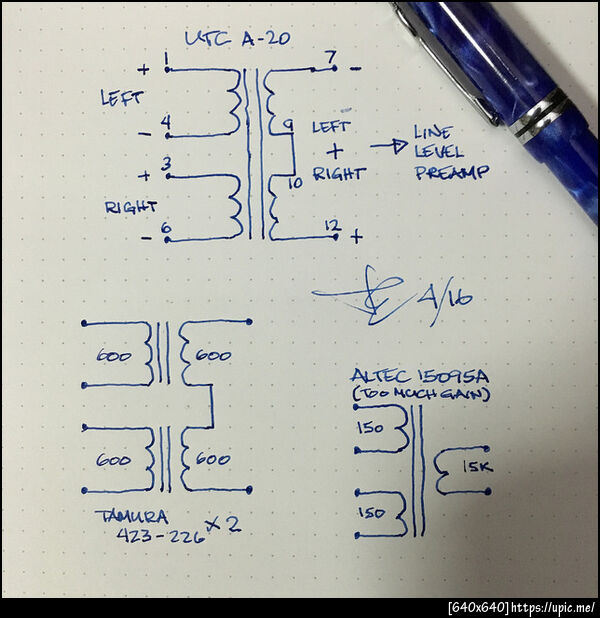 UTC A-20
1
7
+
-
LEFT
-
4
9
LEFT
+
3
+
RIGHT
LINE
LEVEL
PREAMP
10
RIGHT
-
6
12
+
4/16
600
600
600
600
TAMURA
423-226 x 2
ALTEC 15095A
(TOO MUCH GAIN)
150
15K
150
[640x640]https://upic.me/